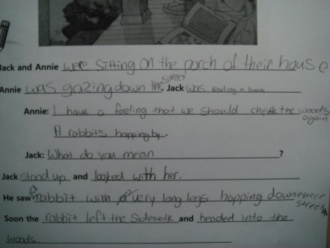 Jack and Annie were sitting on the porch of their house
Annie was gazing down the street Jack was reading a book
Annie: I have a feeling that we should check the woods again
A rabbits hopping by.
Jack: What do you mean ?
Jack stand up and looked with her.
He saw a rabbit with very long legs hopping down their street
Soon the rabbit left the sidewalk and headed into the
woods.